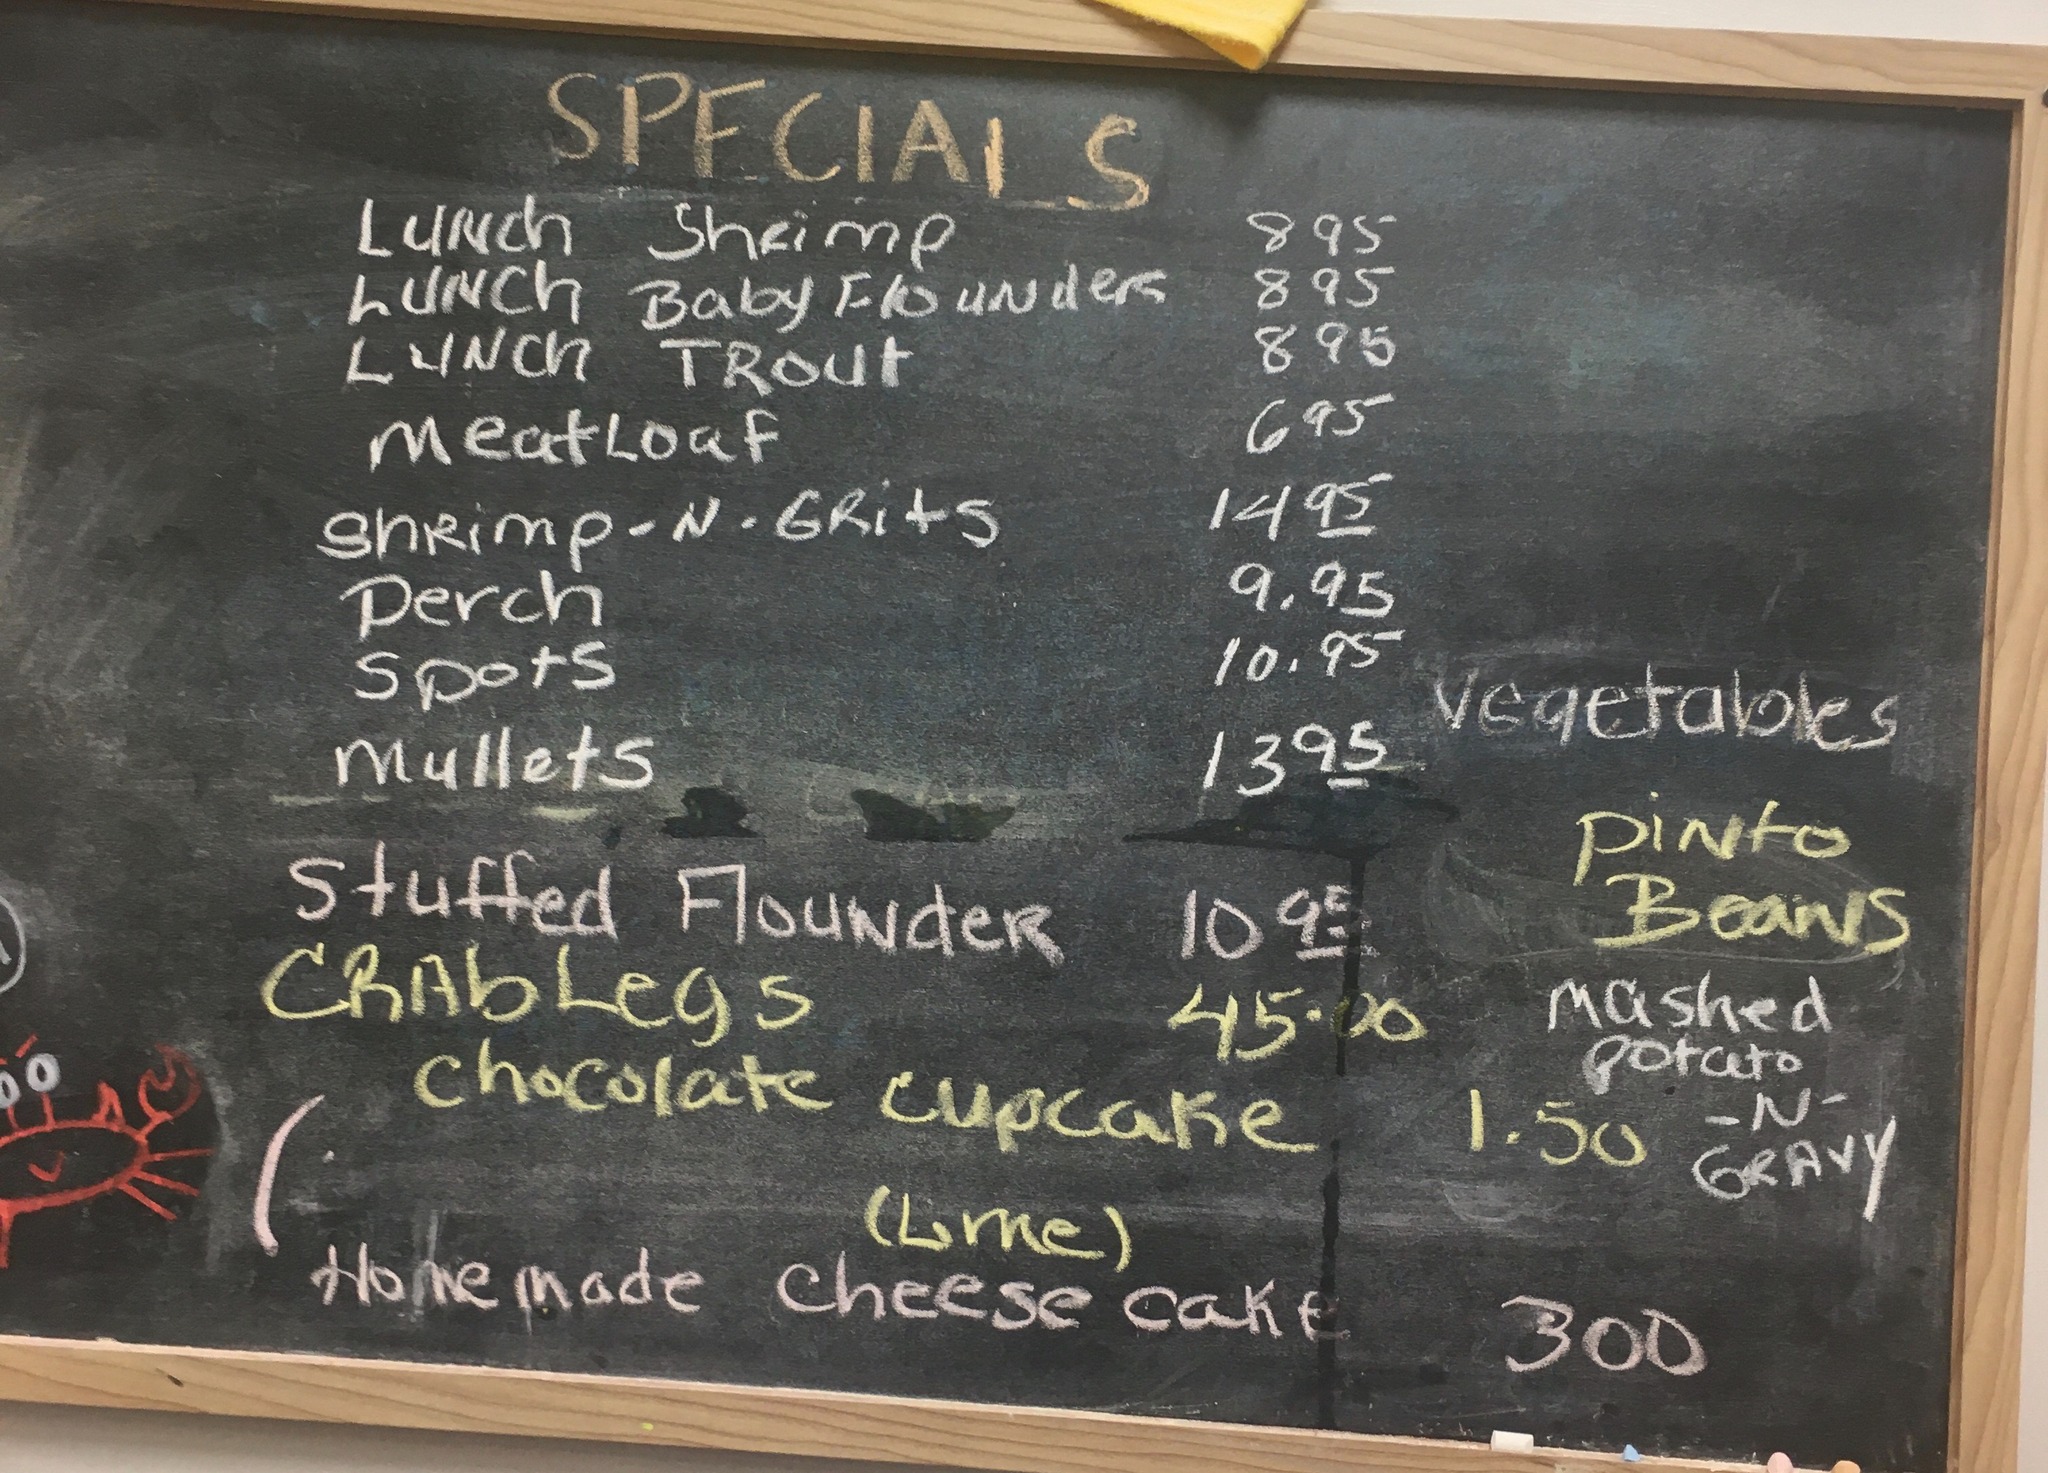 SPECIALS
LUNch Shrimp 895
LUNCh Baby Flounders 895
LUNCh TROUt 895
meatLoaf 695
Shrimp-N-GRits 1495
Perch 9.95
Spots 10.95
mullets 1395
Stuffed Flounder 1095
CRAb Legs 45.00
chocolate cupcake 1.50
(Lime)
Homemade cheese cake 300
vegetables
pinto
Beans
mashed
potato
-N-
GRAVY